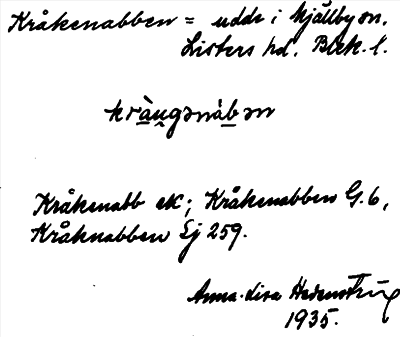 Kråkenabben = udde i Mjällby sn.
Listers hd. Blek. l.
kràu̯gənàb̲ən
Kråkenabb ek; Kråkenabben G. 6,
Kråknabben Ej 259.
Anna-Lisa Hedenstrüg
1935.